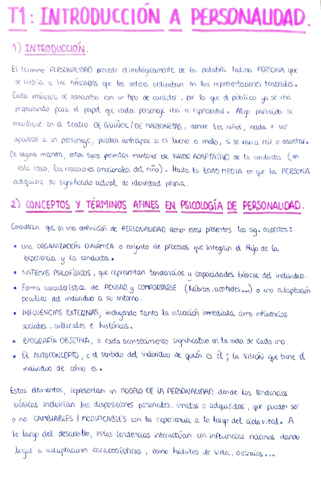 T1: INTRODUCCIÓN A PERSONALIDAD.
1) INTRODUCCIÓN.
El término PERSONALIDAD procede etimológicamente de la palabra latina PERSONA que
se refería a las MÁSCARAS que los actores utilizaban en las representaciones teatrales.
Cada máscara se asociaba con un tipo de carácter, por lo que el público ya se iba
preparando para el papel que cada personaje iba a representar. Algo parecido se
mantiene en el teatro DE GUIÑOL / DE MARIONETAS, donde los niños, nada + ver
aparecer a un personaje, pueden anticipar si es bueno o malo, si se van a reír o asustar.
De alguna manera, estos tipos permiten mantener un VALOR ADAPTATIVO de la conducta (en
este caso, las reacciones emocionales del niño). Hasta la EDAD MEDIA en que la PERSONA
adquiere su significado actual, de identidad propia.
2) CONCEPTOS Y TÉRMINOS AFINES EN PSICOLOGÍA DE PERSONALIDAD.
Consideran que en una definición de PERSONALIDAD deben estar presentes los sig. aspectos:
• Una ORGANIZACIÓN DINÁMICA o conjunto de procesos que integran el flujo de la
experiencia y la conducta.
• SISTEMAS PSICOFÍSICOS, que representan tendencias y capacidades básicas del individuo.
• Forma característica de PENSAR y COMPORTARSE (hábitos, actitudes...) o una adaptación
peculiar del individuo a su entorno.
• INFLUENCIAS EXTERNAS, incluyendo tanto la situación inmediata como influencias
sociales, culturales e históricas.
• BIOGRAFÍA OBJETIVA, o cada acontecimiento significativo en la vida de cada uno.
• EL AUTOCONCEPTO, o el sentido del individuo de quién es él; la VISIÓN que tiene el
individuo de cómo es.
Estos elementos, representan un MODELO DE LA PERSONALIDAD donde las tendencias
básicas indicarían las disposiciones personales, innatas o adquiridas, que pueden ser
o no CAMBIABLES / MODIFICABLES con la experiencia a lo largo del ciclo vital. A
lo largo del desarrollo, estas tendencias interactúan con influencias externas dando
lugar a adaptaciones características, como hábitos de vida, creencias...